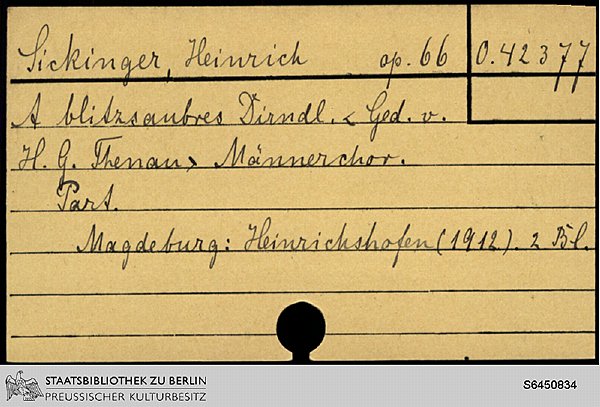 Sickinger, Heinrich op. 66 O. 42 377
A blitzsaubres Dirndl. < Ged. v.
H. G. Thenau > Männerchor.
Part.
Magdeburg: Heinrichshofen (1912). 2 Bl.
STAATSBIBLIOTHEK ZU BERLIN
PREUSSISCHER KULTURBESITZ
S6450834